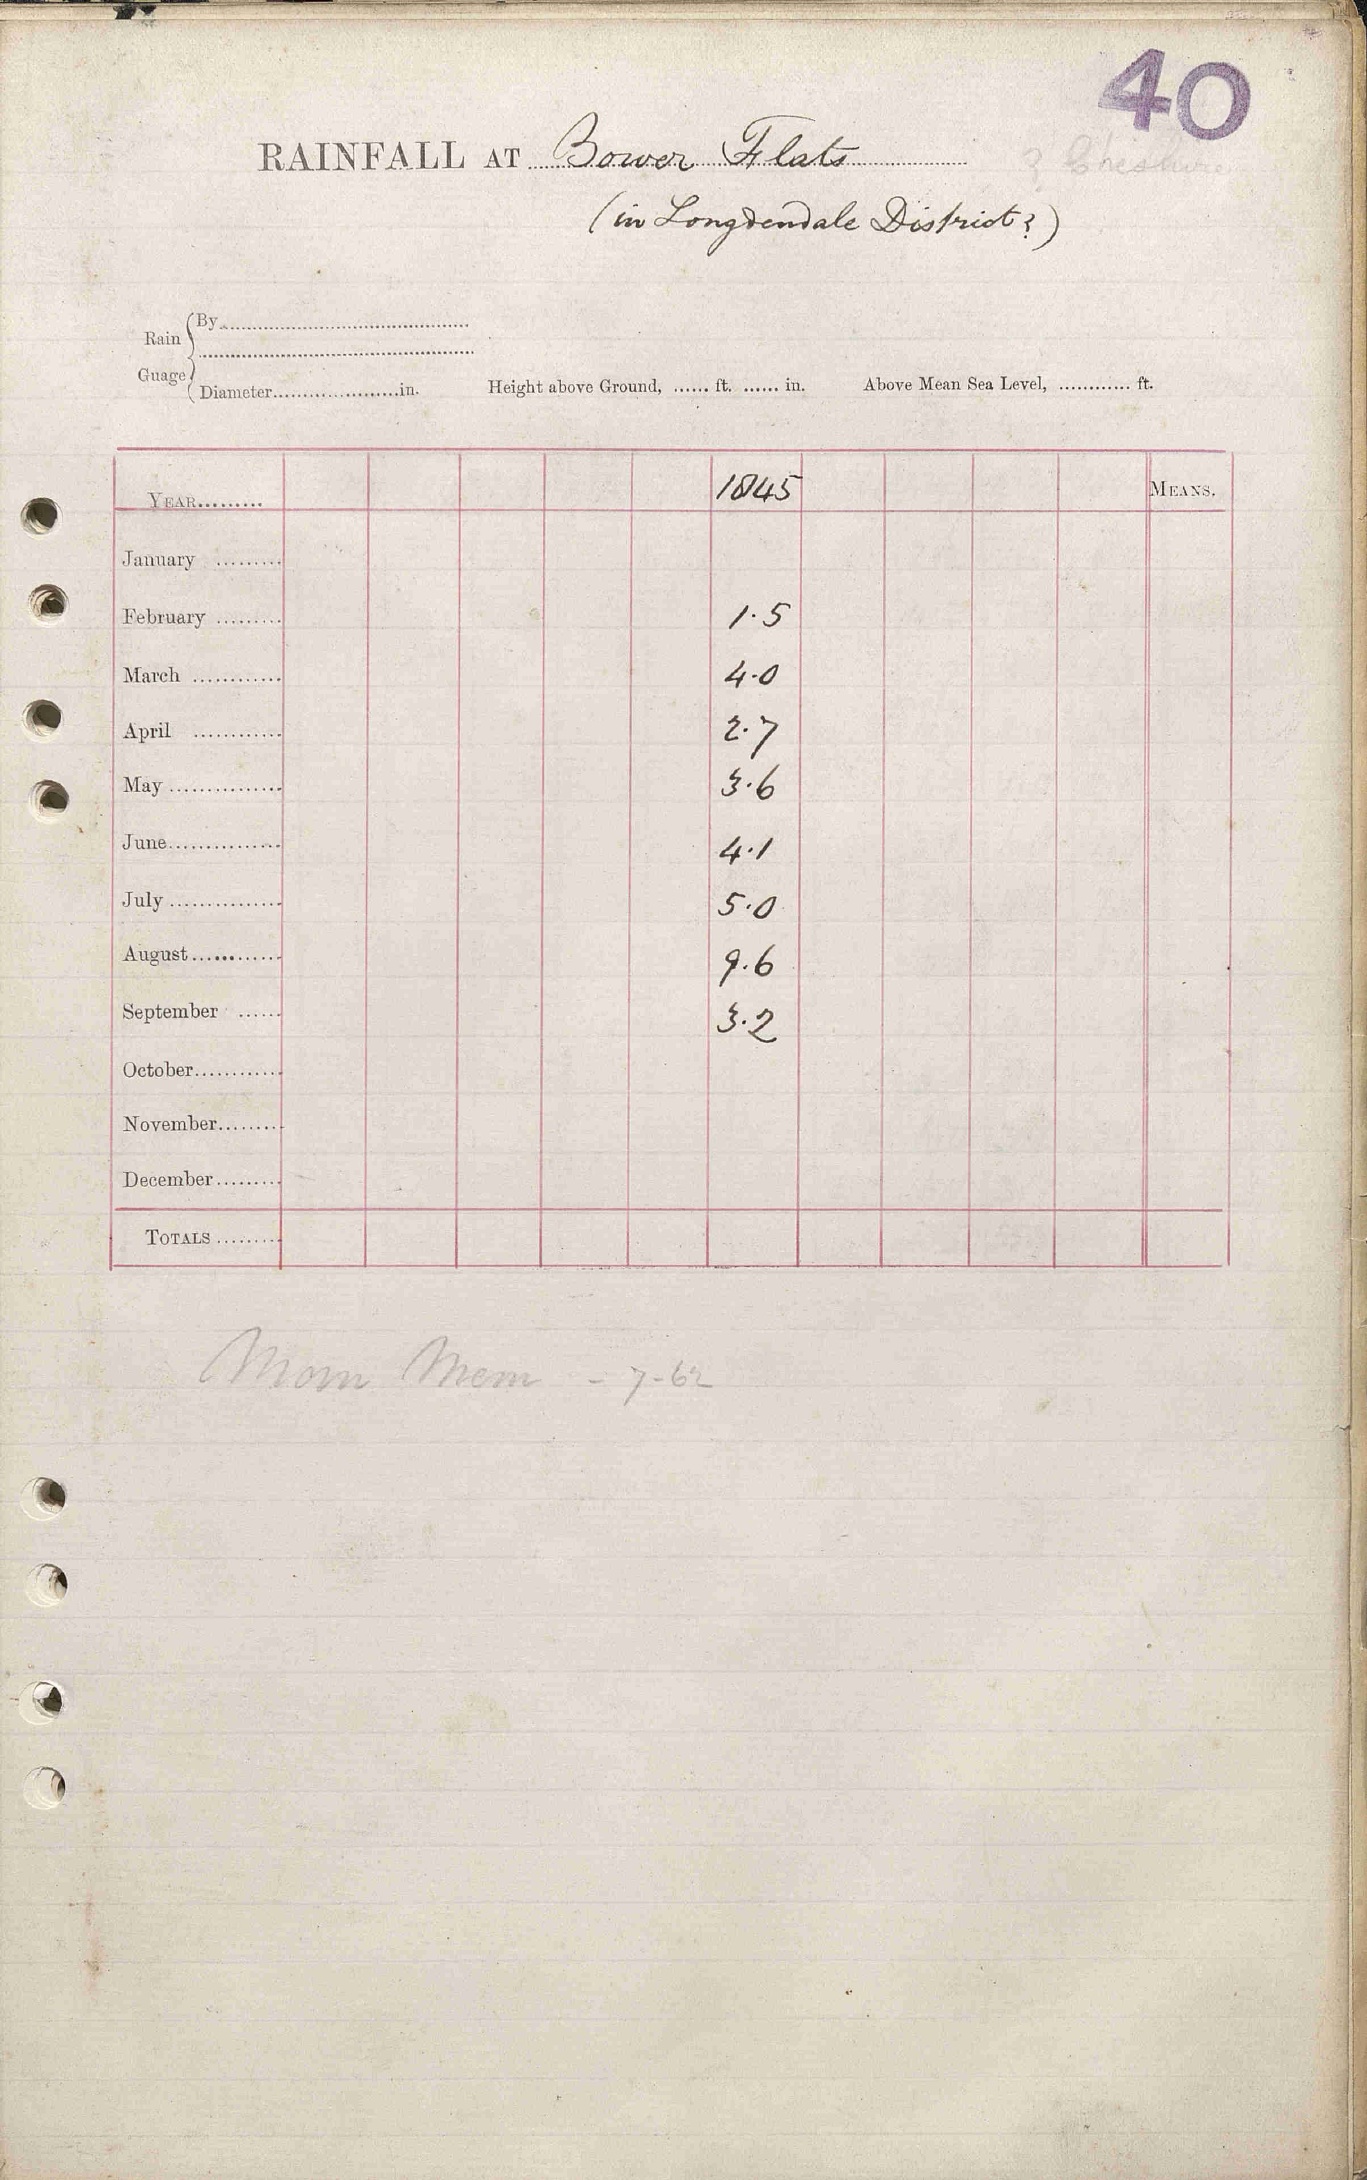 40
RAINFALL AT Bower Flats ? Cheshire
(in Longdendale District?)
Rain Guage { By..........
Diameter..........in. Height above Ground, ...... ft. ...... in. Above Mean Sea Level, ............ ft.
YEAR......... 1845 MEANS.
January .........
February ......... 1.5
March ............ 4.0
April ............ 2.7
May ............... 3.6
June............... 4.1
July ............... 5.0
August............ 9.6
September ...... 3.2
October............
November.........
December.........
TOTALS .........
Mem - 7-62